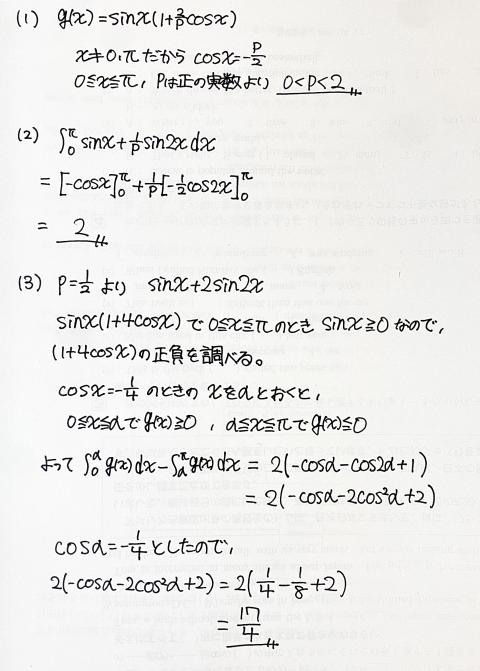 (1) g(x) = sinx(1+2/p cosx)
x≠0,πだから cosx=-p/2
0≦x≦π, Pは正の実数より 0<P<2
(2) ∫₀^π sinx+1/p sin2x dx
= [-cosx]₀^π + 1/p[-1/2cos2x]₀^π
= 2
(3) P=1/2より sinx+2sin2x
sinx(1+4cosx)で0≦x≦πのときsinx≧0なので,
(1+4cosx)の正負を調べる。
cosx=-1/4のときのxをαとおくと,
0≦x≦αでg(x)≧0, α≦x≦πでg(x)≦0
よって∫₀^α g(x)dx-∫_α^π g(x)dx = 2(-cosα-cos2α+1)
= 2(-cosα-2cos²α+2)
cosα=-1/4としたので,
2(-cosα-2cos²α+2)=2(1/4-1/8+2)
= 17/4